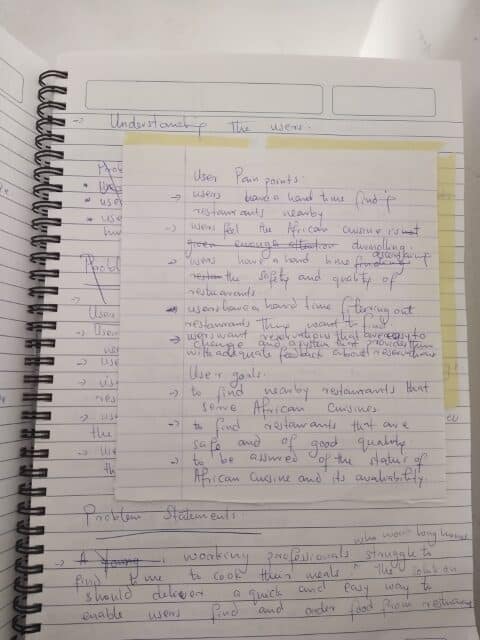 -> Understanding the users.
User Pain points:
-> users have a hard time finding
restaurants nearby
-> users feel the African cuisine is not
given enough attention
-> users have a hard time finding
the safety and quality of
restaurants
-> users have a hard time filtering out
restaurants they want to find
-> users want reservations that are easy to
change and a system that provides them
with adequate feedback about reservations
User goals:
-> to find nearby restaurants that
serve African Cuisines
-> to find restaurants that are
safe and of good quality
-> to be assured of the status of
African Cuisine and its availability.
Prob
* use
* use
Probl
->
User
-> User
-> use
-> vis
res
-> us
the
-> use
th
Problem Statements
who work long hours
-> A young working professionals struggle to
find time to cook their meals. The solution
should deliver a quick and easy way to
enable users find and order food from restaurants